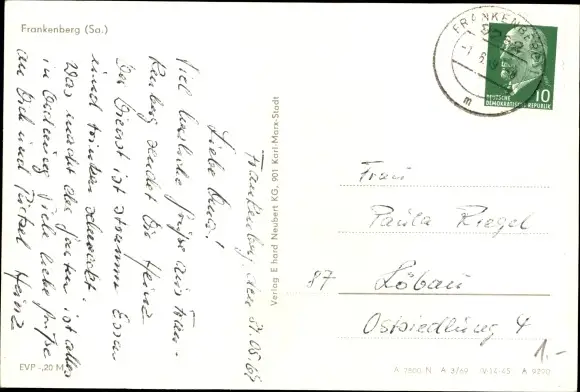 Frankenberg (Sa.)
Frankenberg, den 31.05.69
Liebe Oma!
Viel herzliche Grüße aus Fran-
kenberg sendet Dir Heinz
Der Dienst ist stramm Essen
und trinken schmeckt.
Was macht der Garten ist alles
in Ordnung viele liebe Grüße
an Dich und Heinz
EVP -,20 M
Verlag Erhard Neubert KG, 901 Karl-Marx-Stadt
FRANKENBERG
DEUTSCHE
DEMOKRATISCHE REPUBLIK
10
Frau
Paula Riegel
87 Löbau
Ostsiedlung 4
1.-
A 7600 N A 3/69 IV-14-45 A 9290